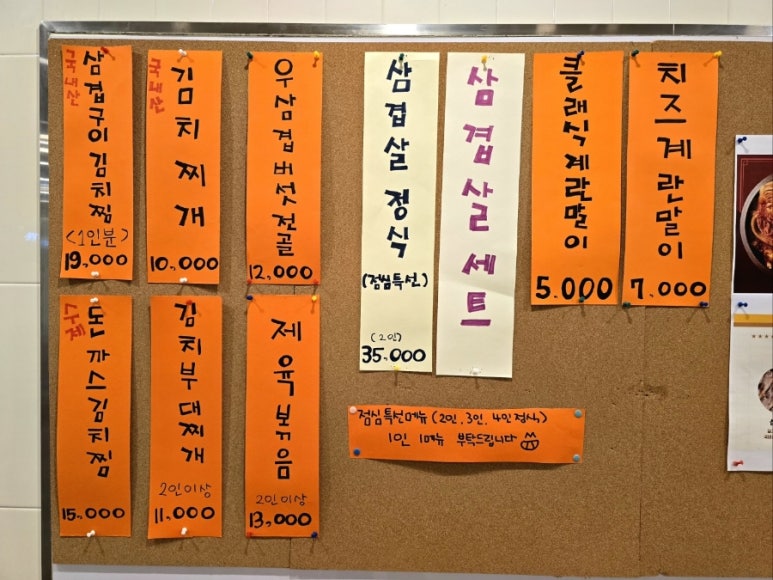 국내산
삼겹구이김치찜
(1인분)
19,000
국내산
김치찌개
10,000
우삼겹버섯전골
12,000
삼겹살 정식
(점심특선)
(2인)
35,000
삼겹살세트
클래식계란말이
5.000
치즈계란말이
7,000
수제
돈까스김치찜
15,000
김치부대찌개
2인이상
11,000
제육볶음
2인이상
13,000
점심특선메뉴 (2인, 3인, 4인 정식)
1인 1메뉴 부탁드립니다